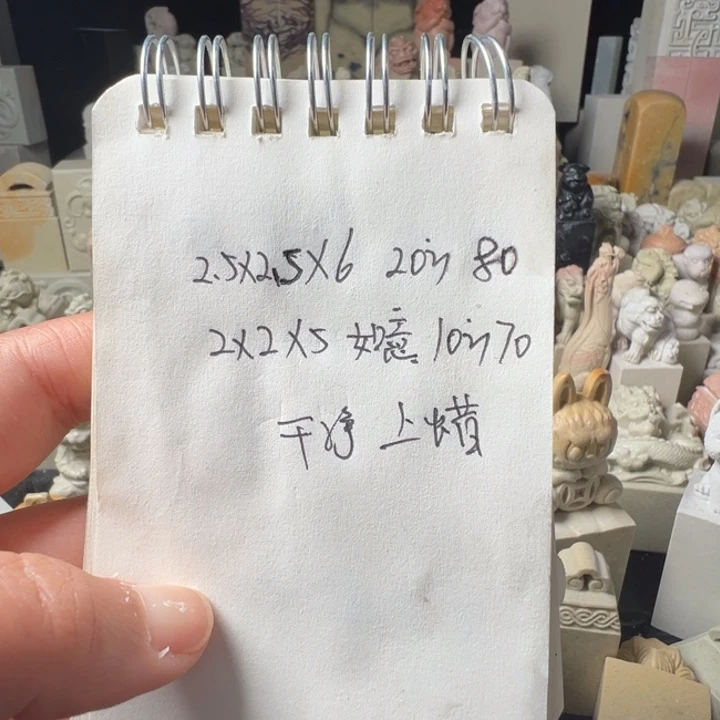 2.5X2.5X6 20个 80
2X2X5 如意 10个 70
干净 上蜡